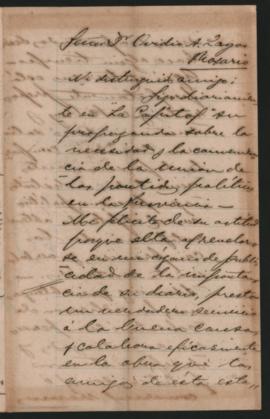 Señor Dr. Ovidio A. Lagos
Rosario
Mi distinguido amigo:
Leo diariamen-
te en La Capital su
propaganda sobre la
necesidad y la convenien-
cia de la union de
los partidos politicos
en la Provincia —
Me felicito de su actitud
porque ella, apreciado-
se en un organo de publi-
cidad de la importan-
cia de su diario, presta
un verdadero servicio
á la buena causa,
y colabora eficazmente
en la obra que los
amigos de ésta está-